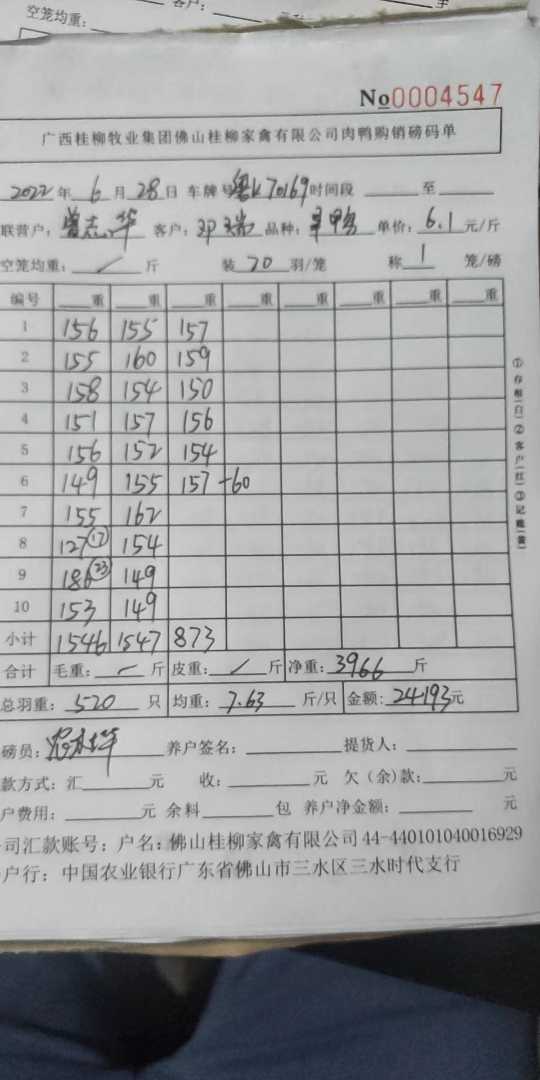 空笼均重:
客户:
No0004547
广西桂柳牧业集团佛山桂柳家禽有限公司肉鸭购销磅码单
2022年 6月28日 车牌号粤K70169时间段 至
联营户: 曾志华 客户: 邓瑞 品种: 单价: 6.1元/斤
空笼均重: / 斤 装 20 羽/笼 称 1 笼/磅
编号 重 重 重 重 重 重 重 重
1 156 155 157
2 155 160 159
3 158 154 150
4 151 157 156
5 156 152 154
6 149 155 157 -60
7 155 162
8 127 (17) 154
9 186 (23) 149
10 153 149
小计 1546 1547 873
合计 毛重: 斤 皮重: / 斤 净重: 3966 斤
总羽重: 520 只 均重: 7.63 斤/只 金额: 24193元
磅员: 养户签名: 提货人:
款方式: 汇 元 收: 元 欠(余)款: 元
户费用: 元 余料 包 养户净金额: 元
司汇款账号: 户名: 佛山桂柳家禽有限公司 44-440101040016929
户行: 中国农业银行广东省佛山市三水区三水时代支行
①存根(白)②客户(红)③记账(黄)